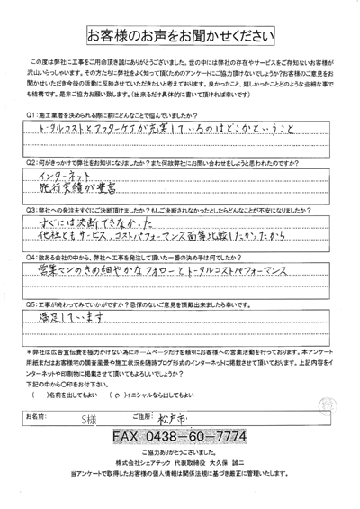 お客様のお声をお聞かせください
この度は弊社に工事をご用命頂き誠にありがとうございました。世の中には弊社の存在やサービスをご存知ないお客様が
沢山いらっしゃいます。その方たちに弊社をよく知って頂くためのアンケートにご協力頂けないでしょうか?お客様のご意見をお
聞かせいただき今後の活動に反映させていただきたいと考えております。良かったこと、悪しかったことどのような些細な事で
も結構です。是非ご協力お願い致します。(出来るだけ具体的に書いて頂ければ幸いです)
Q1:施工業者を決められる際に前にどんなことで悩んでいましたか?
トータルコストとアフターケアが充実しているのはどこかということ
Q2:何がきっかけで弊社をお知りになりましたか?また何故弊社にお問い合わせをしようと思われたのですか?
インターネット
施行実績が豊富
Q3:弊社への発注をすぐにご決断頂けましたか?もしご決断されなかったとしたらどんなことが不安になりましたか?
すぐには決断できなかった
他社ともサービス、コストパフォーマンス面等比較したかったから
Q4:数ある会社の中から、弊社へ工事を発注して頂いた一番の決め手は何でしたか?
営業マンのきめ細やかなフォローとトータルコストパフォーマンス
Q5:工事が終わってみていかがですか?忌憚のないご意見を頂戴出来ましたら幸いです。
満足しています
*弊社は広告宣伝費を極力かけない為にホームページだけを頼りにお客様への営業活動を行っております。本アンケート
用紙またはお客様宅の調査風景や施工状況を随時ブログ形式のインターネットに掲載させて頂いております。上記内容をイ
ンターネットや印刷物に掲載させて頂いてもよろしいでしょうか?
下記の中から○印をお付下さい。
( )名前を出してもよい (○)イニシャルならば出してもよい
お名前: S様 ご住所: 松戸市
FAX 0438-60-7774
ご協力ありがとうございました。
株式会社シェアテック 代表取締役 大久保 誠二
当アンケートで取得したお客様の個人情報は関係法規に基づき厳正に管理いたします。